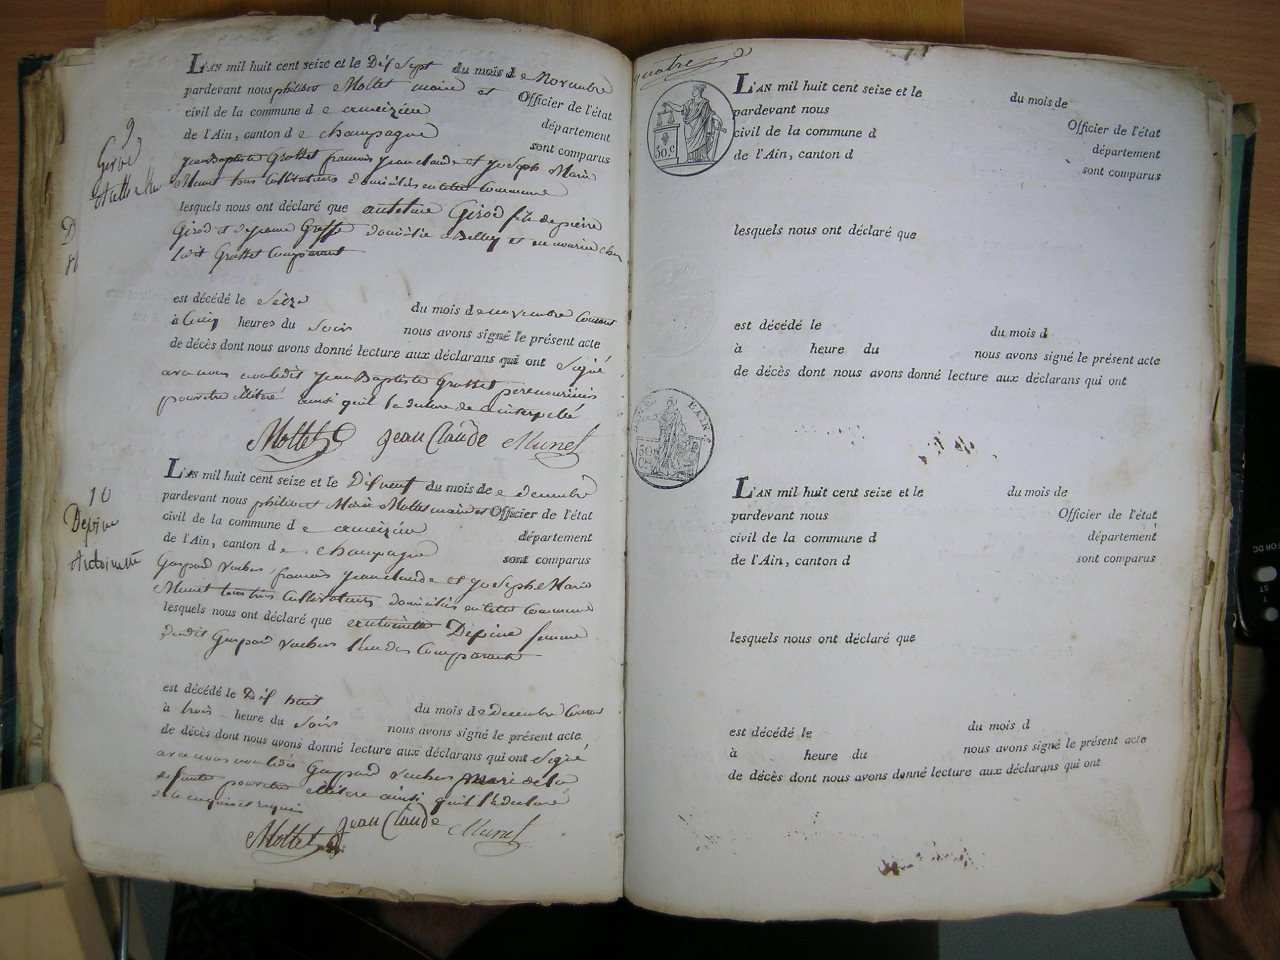 9
Girod
L'AN mil huit cent seize et le Dix Sept du mois de Novembre
pardevant nous philibert Mollet maire et Officier de l'état
civil de la commune d
de l'Ain, canton de champagne département
sont comparus
jean Baptiste Grottet francois jean claude et joseph Marie
Munet tous Cultivateurs domiciliés en cette Commune
lesquels nous ont déclaré que antelme Girod fils de pierre
Girod et de jeanne domicilié a Belley et en nourice chez
ledit Grottet Comparant
est décédé le Seize du mois de novembre Courant
à Cinq heures du Soir nous avons signé le présent acte
de décès dont nous avons donné lecture aux déclarans qui ont Signé
avec nous non ledit jean Baptiste Grottet pere nouricier
pour etre illitéré ainsi quil la de ce interpelé
Mollet jean Claude Munet
10
Depine
Antoinette
L'AN mil huit cent seize et le Dix neuf du mois de decembre
pardevant nous philibert Marie Mollet maire et Officier de l'état
civil de la commune d
de l'Ain, canton de champagne département
sont comparus
Gaspard francois jean claude et joseph Marie
Munet tous trois Cultivateurs domiciliés en cette Commune
lesquels nous ont déclaré que antoinette Depine femme
dudit Gaspard l'un des Comparants
est décédé le Dix huit du mois de decembre Courant
à trois heure du Soir nous avons signé le présent acte
de décès dont nous avons donné lecture aux déclarans qui ont Signé
avec nous non ledit Gaspard mari de la
defunte pour etre illitere ainsi quil l'a déclaré
de ce enquis et requis
Mollet jean Claude Munet
quatre
50 C.
L'AN mil huit cent seize et le du mois de
pardevant nous Officier de l'état
civil de la commune d département
de l'Ain, canton d sont comparus
lesquels nous ont déclaré que
est décédé le du mois d
à heure du nous avons signé le présent acte
de décès dont nous avons donné lecture aux déclarans qui ont
L'AN mil huit cent seize et le du mois de
pardevant nous Officier de l'état
civil de la commune d département
de l'Ain, canton d sont comparus
lesquels nous ont déclaré que
est décédé le du mois d
à heure du nous avons signé le présent acte
de décès dont nous avons donné lecture aux déclarans qui ont